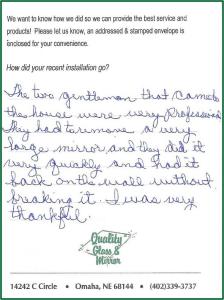 We want to know how we did so we can provide the best service and
products! Please let us know, an addressed & stamped envelope is
enclosed for your convenience.
How did your recent installation go?
The two gentleman that came to
the house were very Professional
They had to remove a very
large mirror and they did it
very quickly and had it
back on the wall without
breaking it. I was very
thankful.
Quality
Glass &
Mirror
14242 C Circle • Omaha, NE 68144 • (402)339-3737